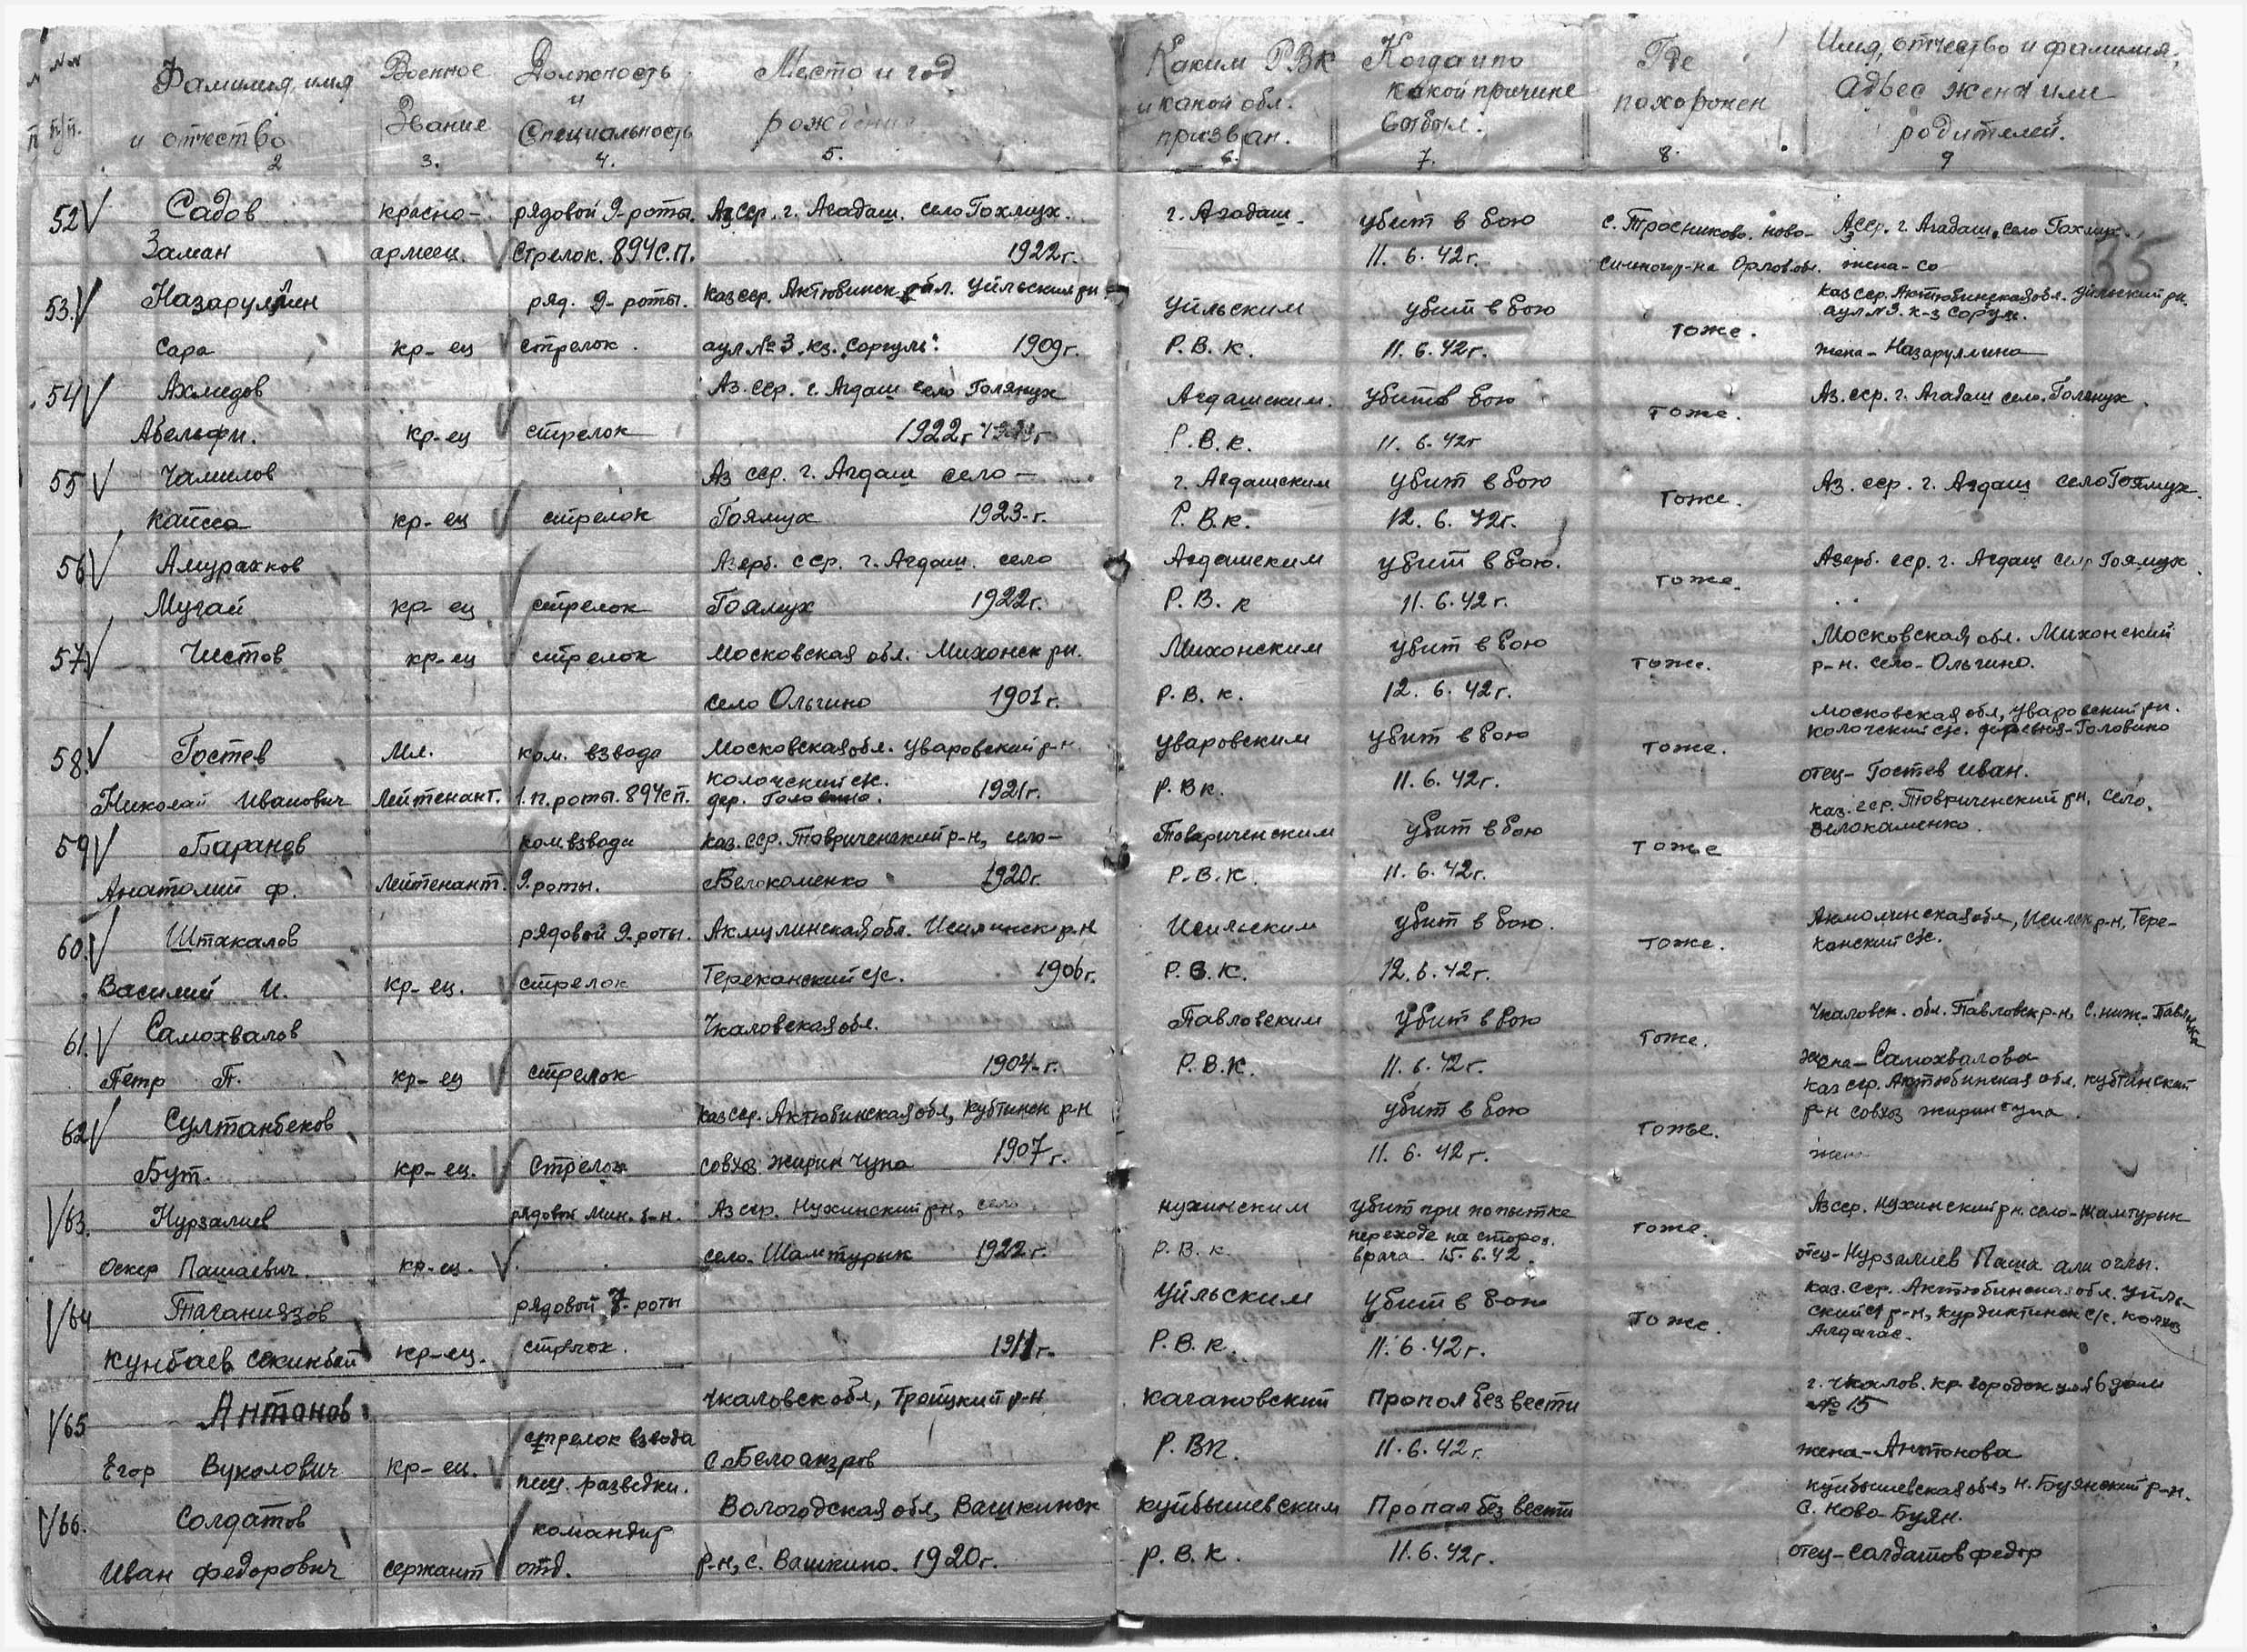 №№ п/п.
Фамилия, имя и отчество
2
Военное Звание
3.
Должность и Специальность
4.
Место и год рождения
5.
Каким РВК и какой обл. призван.
6.
Когда и по какой причине выбыл.
7.
Где похоронен
8.
Имя, отчество и фамилия, адрес жены или родителей.
9
35
52 Садов красно- рядовой 9-роты. Аз сср. г. Агадаш. село Гохмух. г. Агадаш- убит в бою с. Тросниково. ново- Аз ССР. г. Агадаш, село Гохмух.
Заман армеец. Стрелок. 894 с.п. 1922 г. 11. 6. 42 г. Орлов обл. жена-
53. Назаруллин ряд. 9-роты. Каз сср. Актювинск обл. Уйльский рн Уйльским убит в бою тоже. Каз сср. Актюбинская обл. Уйльский рн.
аул №3. к-з Соргул.
Сара кр-ец стрелок. аул №3. кз. Соргуль. 1909 г. Р.В.К. 11. 6. 42 г. жена- Назаруллина
54 Ахмедов Аз. сср. г. Агдаш село Голямух Агдашским. убит в бою тоже. Аз. сср. г. Агадаш село. Голямух.
Абельфи. кр-ец стрелок 1922 г Р.В.К. 11. 6. 42 г
55 Чамилов Аз сср. г. Агдаш село- г. Агдашским убит в бою тоже. Аз. сср. г. Агдаш село Гоямух.
Каисса кр-ец стрелок Гоямух 1923-г. Р.В.К. 12. 6. 42 г.
56 Амурахнов Азерб. сср. г. Агдаш. село Агдашским убит в бою. тоже. Азерб. сср. г. Агдаш село Гоямух.
Мугай кр-ец стрелок Гоямух 1922 г. Р.В.К 11. 6. 42 г.
57. Чистов кр-ец стрелок Московская обл. Михонск рн. Михонским убит в бою тоже. Московская обл. Михонский
р-н. село-Ольгино.
село Ольгино 1901 г. Р.В.К. 12. 6. 42 г.
58. Гостев Мл. ком. взвода Московская обл. Уваровский р-н. Уваровским убит в бою тоже. Московская обл, Уваровский рн.
Колочский с/с. деревня-Головино
Николай Иванович Лейтенант. 1. п. роты. 894 с п. Колочский с/с. дер. Головино. 1921 г. Р.В К. 11. 6. 42 г. отец- Гостев Иван.
59 Баранов ком взвода Каз. сср. Тавриченский р-н, село- Тавриченским убит в бою тоже Каз. сср. Тавриченский рн, село.
Белокаменко.
Анатолий Ф. Лейтенант. 9. роты. Белокаменко 1920 г. Р.В.К. 11. 6. 42 г.
60. Штакалов рядовой 9-роты. Акмулинская обл. р-н Исильским убит в бою. тоже. Акмолинская обл, Исилск р-н, Тере-
канский с/с.
Василий И. кр-ец. стрелок Тереканский с/с. 1906 г. Р.В.К. 12. 6. 42 г.
61. Самохвалов Чкаловская обл. Павловским убит в бою тоже. Чкаловск. обл. Павловск р-н, С. ниж.- Павловка
Петр П. кр-ец стрелок 1904-г. Р.В.К. 11. 6. 42 г. жена- Самохвалова
62 Султанбеков Каз сср. Актюбинская обл, Кубтинск р-н убит в бою тоже. Каз сср. Актюбинская обл. Кубтинский
р-н совхоз жиринчупа.
Бут. кр-ец. Стрелок совхоз жирин чупа 1907 г. 11. 6. 42 г. жена
63. Нурзалиев рядовой Мин. б-н. Аз сср. Нухинский рн, село нухинским убит при попытке тоже. Аз сср. Нухинский рн. село-Шамтурык
перехода на сторон.
Оскер Пашаевич. кр-ец. село. Шамтурык 1922 г. Р.В.К. врага 15. 6. 42. отец-Нурзалиев Паша али оглы.
64 Таганиязов рядовой 7-роты Уйльским убит в бою тоже. Каз. сср. Актюбинская обл. Уйль-
ский р-н, Курдиктинск с/с. колхоз
Алдагас.
Кунбаев Секинбай кр-ец. стрелок. 1911 г. Р.В.К. 11. 6. 42 г.
65 Антонов Чкаловск обл, Троицкий р-н Кагановский Пропал без вести г. Чкалов. кр. городок ул 6 дом
№ 15
Егор Вуколович кр-ец. стрелок взвода пеш. разведки. с. Белоазров Р. ВК. 11. 6. 42 г. жена-Антонова
66. Солдатов командир Вологодская обл, Вашкинск Куйбышевским Пропал без вести Куйбышевская обл, Н. Буянский р-н.
С. Ново-Буян.
Иван Федорович сержант отд. р-н, с. Вашкино. 1920 г. Р.В.К. 11. 6. 42 г. отец-Салдатов Федор